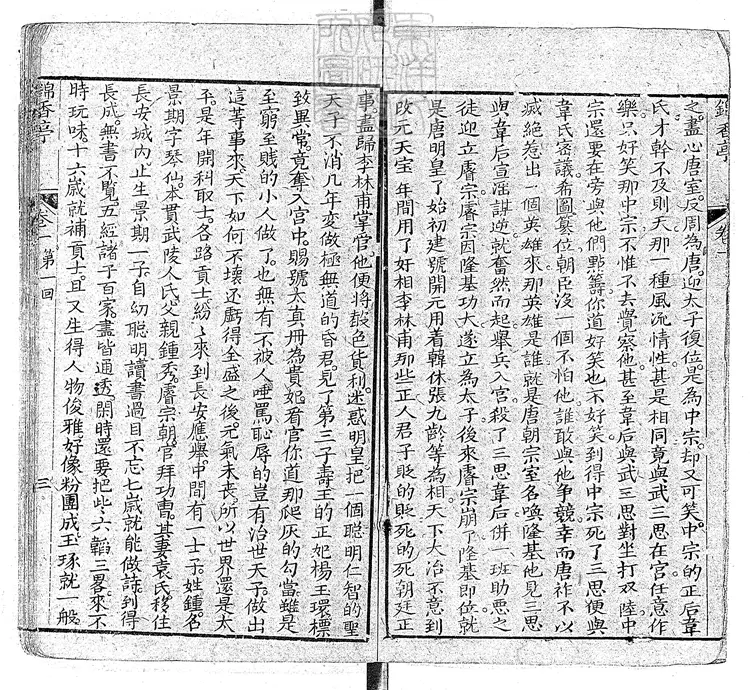 錦香亭 卷一
之盡心唐室反周為唐迎太子復位是為中宗却又可笑中宗的正后韋
氏才幹不及則天那一種風流情性甚是相同竟與武三思在宮任意作
樂只好笑那中宗不惟不去覺察他甚至韋后與武三思對坐打双陸中
宗還要在旁與他們點籌你道好笑也不好笑到得中宗死了三思便與
韋氏密議希圖篡位朝臣沒一個不怕他誰敢與他争競幸而唐祚不以
滅絕惹出一個英雄來那英雄是誰就是唐朝宗室名喚隆基他見三思
與韋后宣淫謀逆就奮然而起舉兵入宮殺了三思韋后併一班助惡之
徒迎立睿宗睿宗因隆基功大遂立為太子後來睿宗崩了隆基即位就
是唐明皇了始初建號開元用着韓休張九齡等為相天下大治不意到
改元天宝年間用了奸相李林甫那些正人君子貶的貶死的死朝廷正
事盡歸李林甫掌官他便將聲色貨利迷惑明皇把一個聰明仁智的聖
天子不消几年变做極無道的昏君見了第三子壽王的正妃楊玉環標
致異常竟奪入宮中賜號太真冊為貴妃看官你道那爬灰的勾當雖是
至窮至賤的小人做了也無有不被人唾罵恥辱的豈有治世天子做出
這等事來天下如何不壞还虧得全盛之後元氣未喪所以世界還是太
平是年開科取士各路貢士紛〻來到長安應舉中間有一士子姓鍾名
景期字琴仙本貫武陵人氏父親鍾秀睿宗朝官拜功曹其妻袁氏移住
長安城內止生景期一子自幼聪明讀書過目不忘七歲就能做詩到得
長成無書不覽五經諸子百家盡皆通透閒時還要把些六韜三畧來不
時玩味十六歲就補貢士且又生得人物俊雅好像粉團成玉琢就一般
錦香亭 卷一 第一回 三